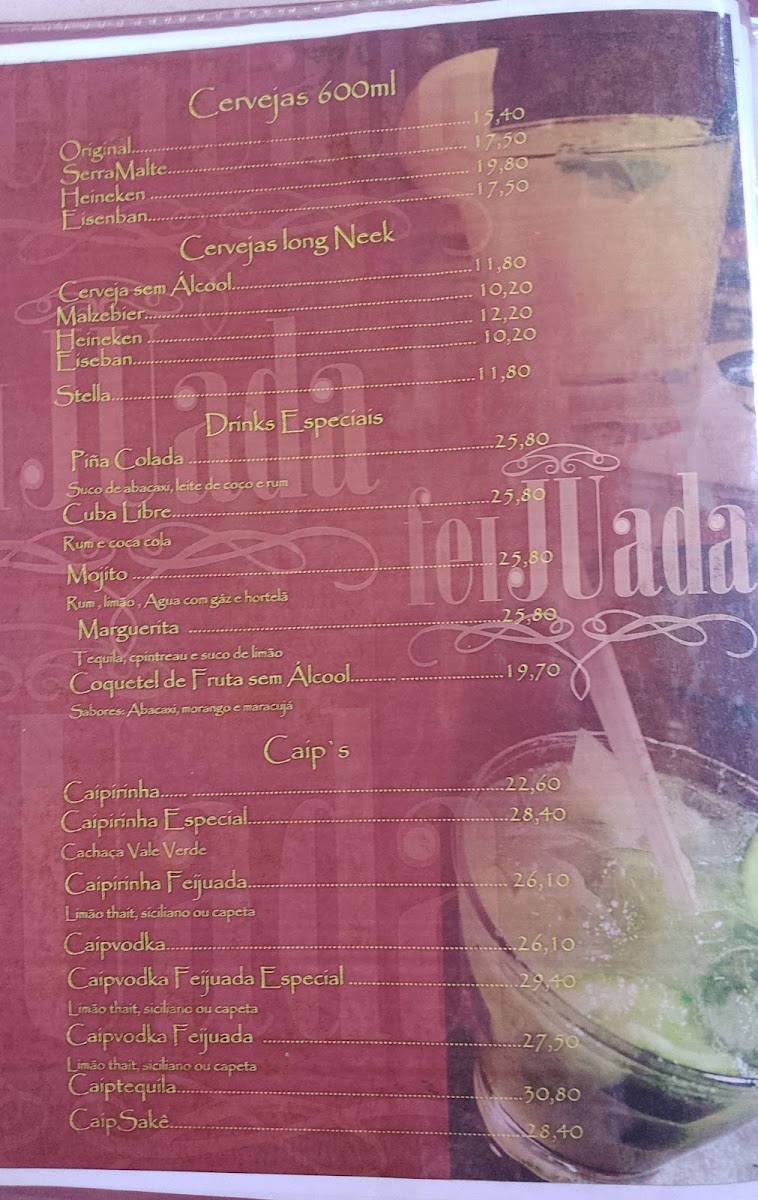 Cervejas 600ml
Original 15,40
SerraMalte 17,50
Heineken 19,80
Eisenban 17,50
Cervejas long Neek
Cerveja sem Álcool 11,80
Malzebier 10,20
Heineken 12,20
Eiseban 10,20
Stella 11,80
Drinks Especiais
Piña Colada 25,80
Suco de abacaxi, leite de coco e rum
Cuba Libre 25,80
Rum e coca cola
Mojito 25,80
Rum , limão , Agua com gáz e hortelã
Marguerita 25,80
Tequila, cointreau e suco de limão
Coquetel de Fruta sem Álcool 19,70
Sabores: Abacaxi, morango e maracujá
feiJUada
Caip`s
Caipirinha 22,60
Caipirinha Especial 28,40
Cachaça Vale Verde
Caipirinha Feijuada 26,10
Limão thait, siciliano ou capeta
Caipvodka 26,10
Caipvodka Feijuada Especial 29,40
Limão thait, siciliano ou capeta
Caipvodka Feijuada 27,50
Limão thait, siciliano ou capeta
Caiptequila 30,80
CaipSakê 28,40